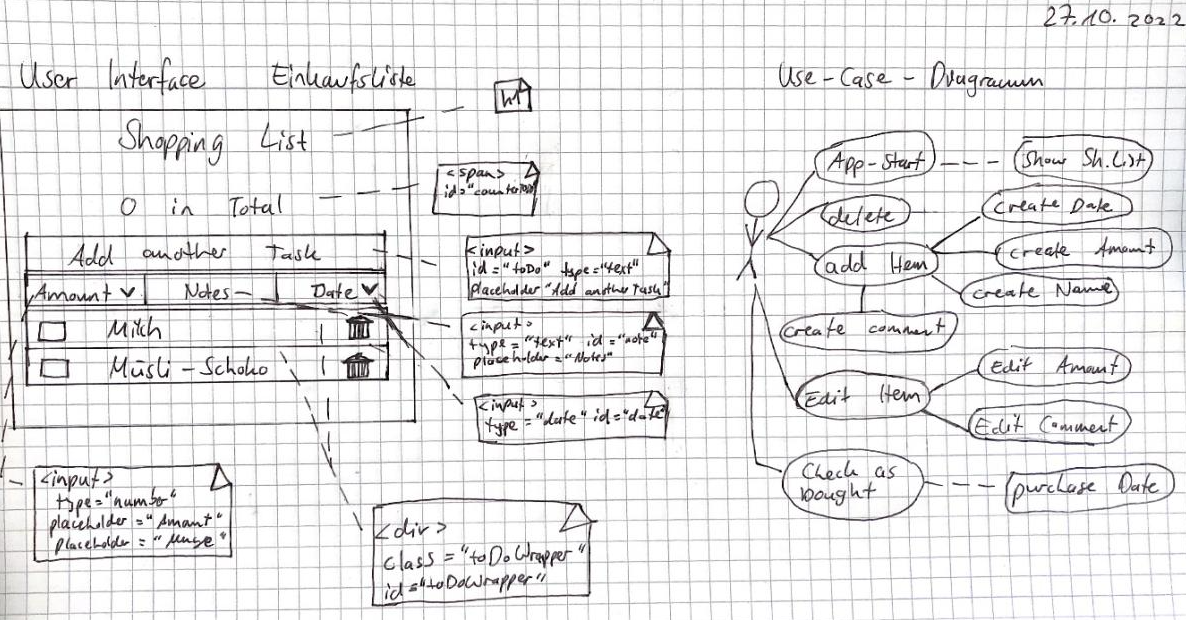 27.10.2022
User Interface Einkaufsliste
Shopping List
h1
<span>
0 in Total
Add another Task
<input>
id="toDo" type="text"
placeholder "Add another Task"
Amount Notes Date
Milch
Müsli-Schoko
<input>
type="text" id="note"
placeholder="Notes"
<input>
type="date" id="date"
<input>
type="number"
placeholder="Amount"
placeholder="Menge"
<div>
class="toDoWrapper"
id="toDoWrapper"
Use-Case-Diagramm
App-Start
Show Sh.List
delete
Create Date
add Item
create Amount
create Name
create comment
Edit Item
Edit Amount
Edit Comment
Check as
bought
purchase Date